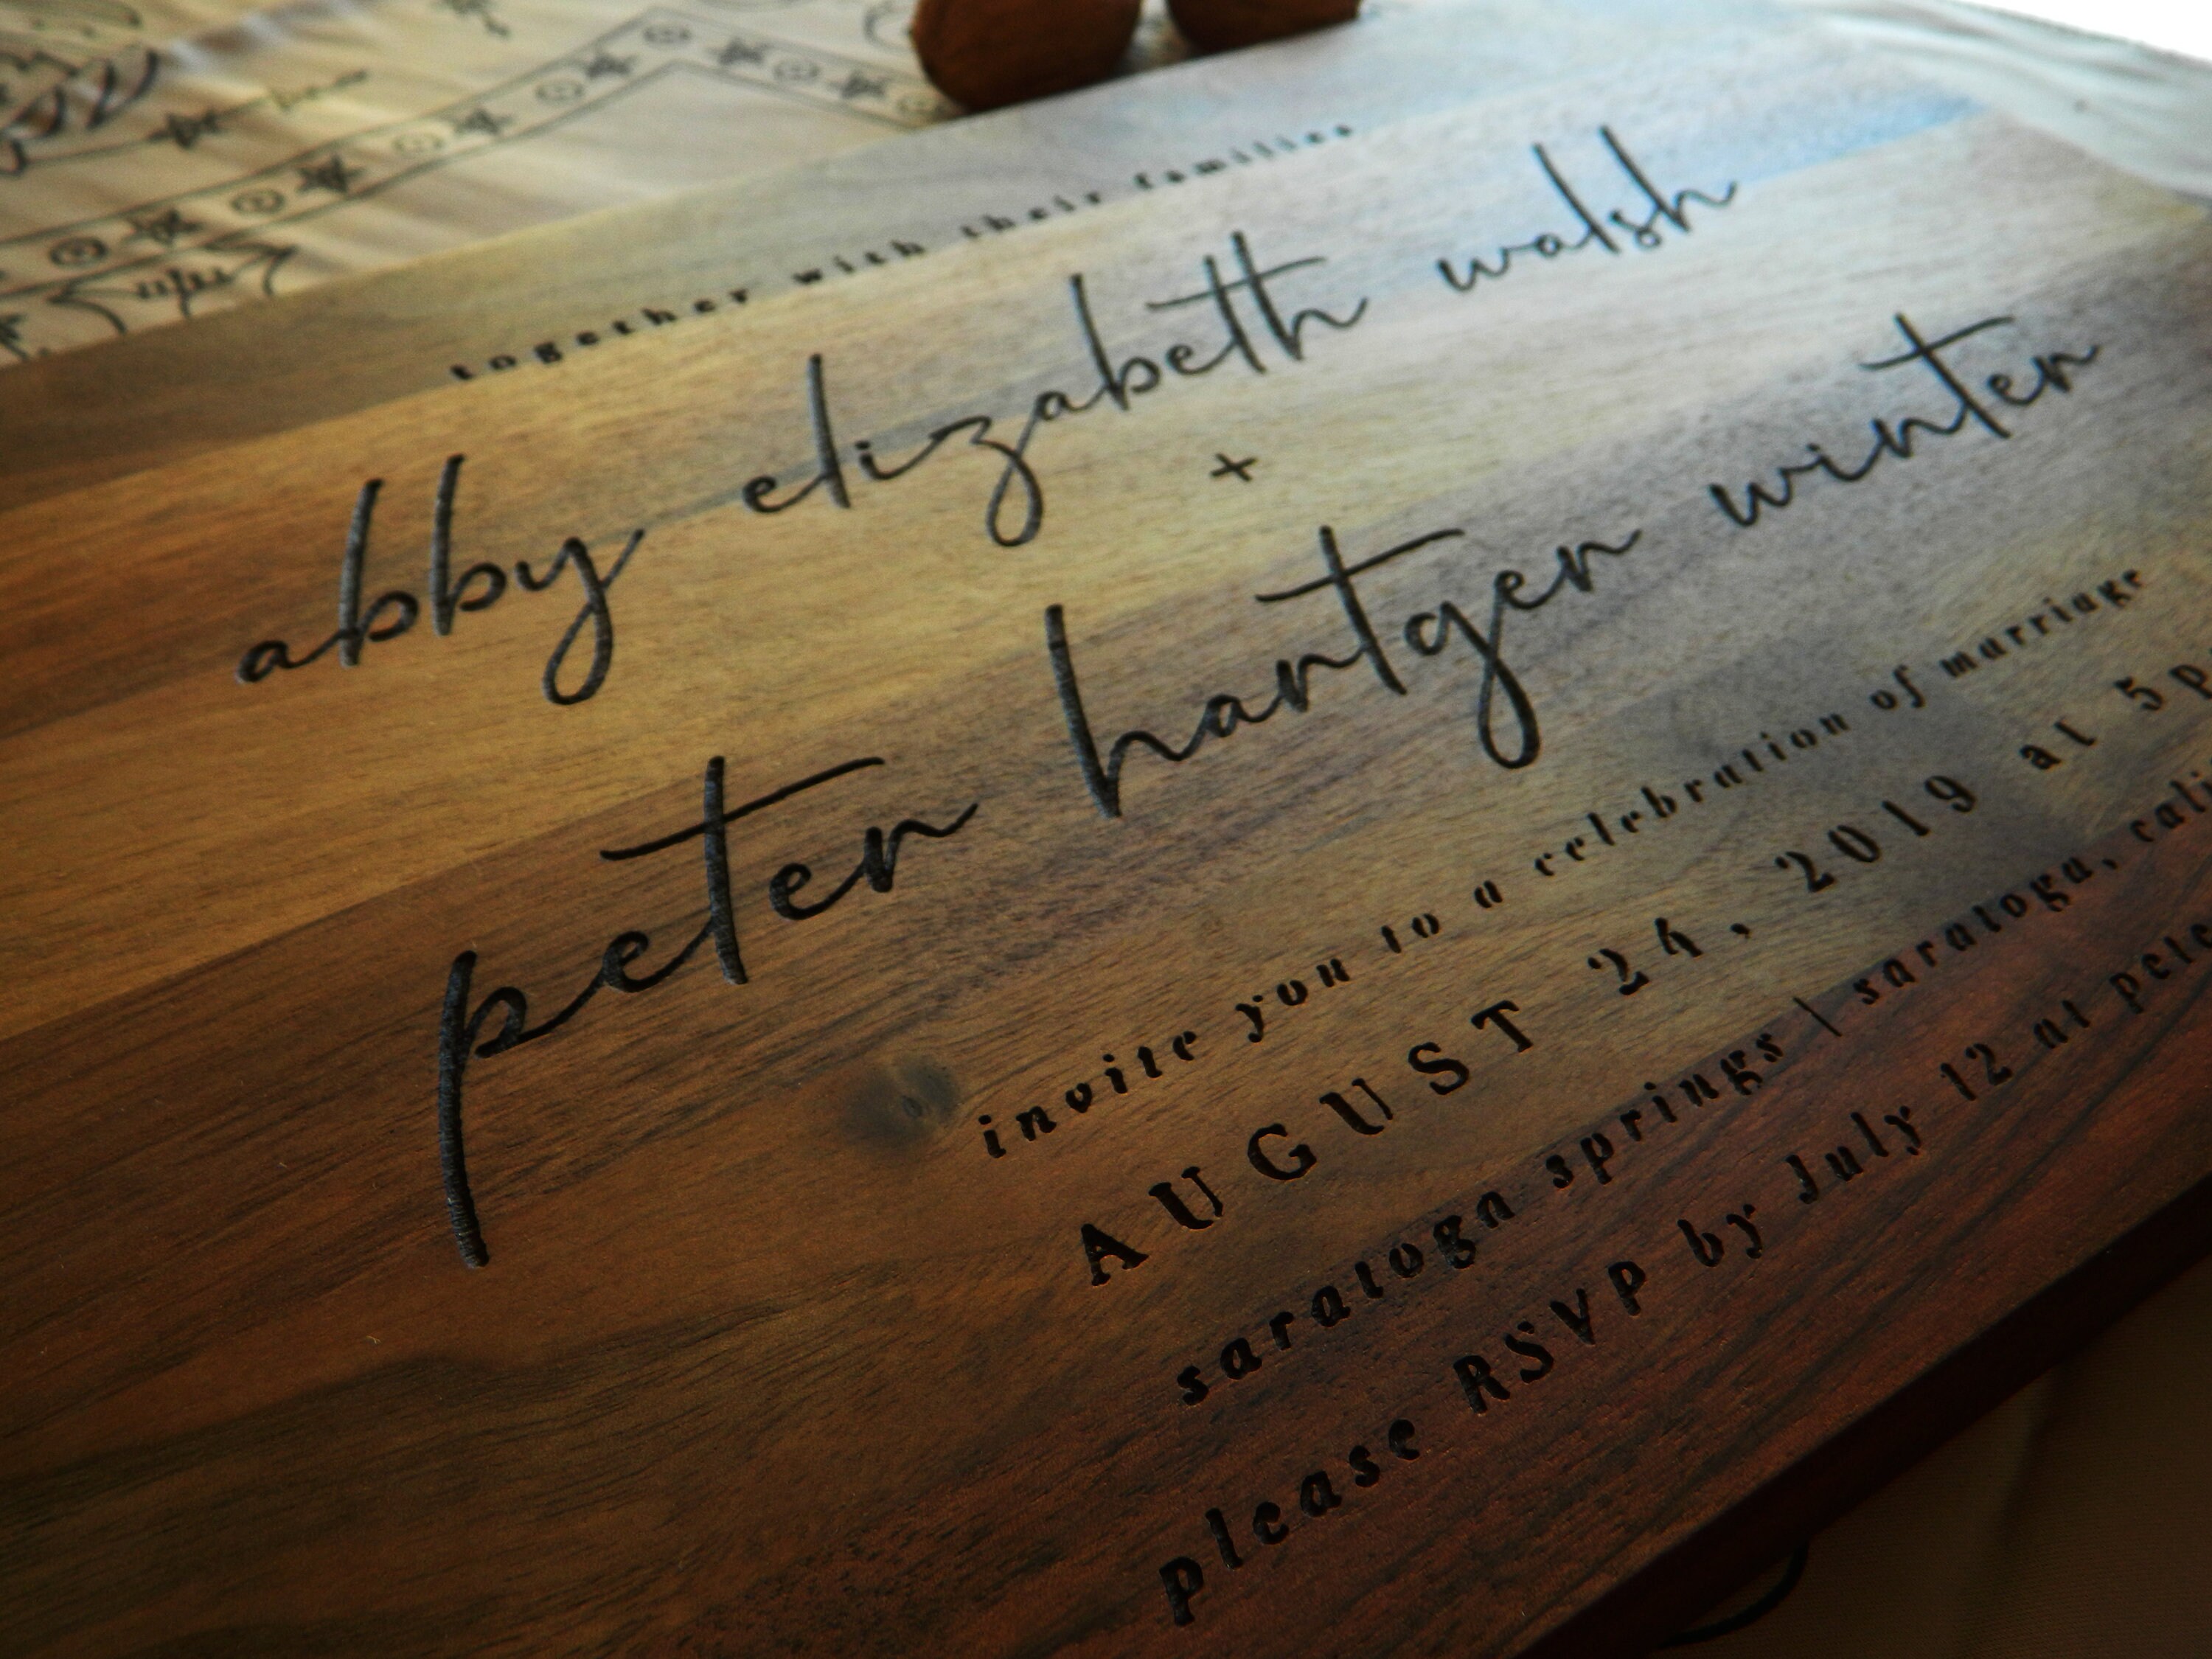 together with their families
abby elizabeth walsh
+
peter hartgen winter
invite you to a celebration of marriage
AUGUST 24, 2019 at 5p
saratoga springs | saratoga, cali
please RSVP by July 12 at pete